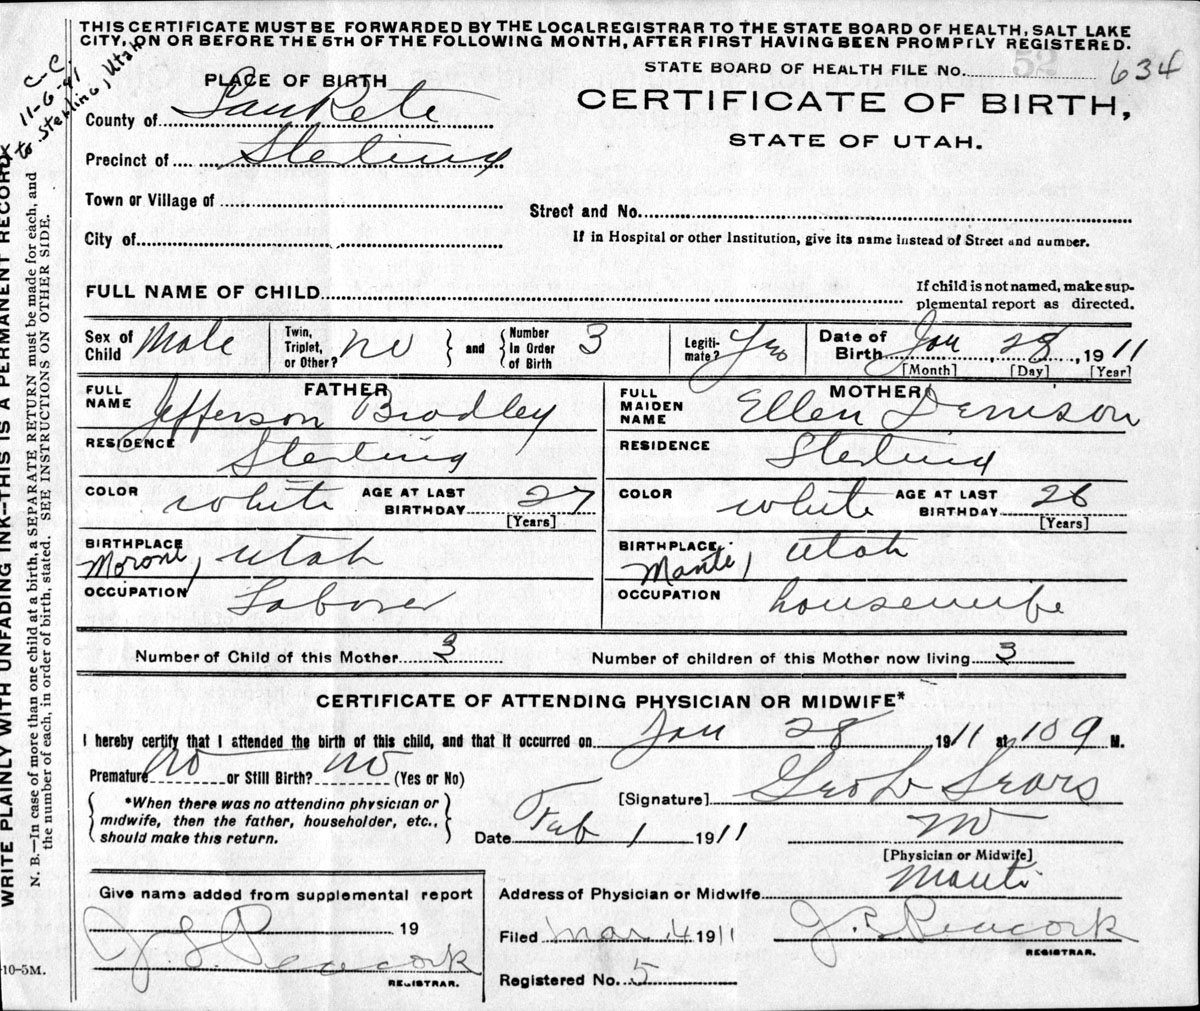 THIS CERTIFICATE MUST BE FORWARDED BY THE LOCAL REGISTRAR TO THE STATE BOARD OF HEALTH, SALT LAKE
CITY, ON OR BEFORE THE 5TH OF THE FOLLOWING MONTH, AFTER FIRST HAVING BEEN PROMPTLY REGISTERED.
C-C.
11-6-41
to Sterling, Utah
STATE BOARD OF HEALTH FILE No. 52 634
PLACE OF BIRTH
CERTIFICATE OF BIRTH,
STATE OF UTAH.
County of SanPete
Precinct of Sterling
Town or Village of
Street and No.
City of
If in Hospital or other Institution, give its name instead of Street and number.
FULL NAME OF CHILD
If child is not named, make sup-
plemental report as directed.
Sex of Child Male
Twin, Triplet, or Other? no
and
Number In Order of Birth 3
Legiti-mate? Yes
Date of Birth Jan 28, 1911
[Month] [Day] [Year]
FATHER
FULL NAME Jefferson Bradley
RESIDENCE Sterling
COLOR white AGE AT LAST BIRTHDAY 27
[Years]
BIRTHPLACE Moroni, Utah
OCCUPATION Laborer
MOTHER
FULL MAIDEN NAME Ellen Denison
RESIDENCE Sterling
COLOR white AGE AT LAST BIRTHDAY 26
[Years]
BIRTHPLACE Mante, Utah
OCCUPATION housewife
Number of Child of this Mother 3
Number of children of this Mother now living 3
CERTIFICATE OF ATTENDING PHYSICIAN OR MIDWIFE*
I hereby certify that I attended the birth of this child, and that it occurred on Jan 28 1911 at 10 9 M.
Premature no or Still Birth? no (Yes or No)
*When there was no attending physician or
midwife, then the father, householder, etc.,
should make this return.
[Signature] Geo L Sears
Date Feb 1 1911
[Physician or Midwife]
Give name added from supplemental report
19
J. L. Peacock
REGISTRAR.
Address of Physician or Midwife Manti
Filed Mar 4 1911 J. L. Peacock
REGISTRAR.
Registered No. 5
WRITE PLAINLY WITH UNFADING INK--THIS IS A PERMANENT RECORD
N. B.—In case of more than one child at a birth, a SEPARATE RETURN must be made for each, and
the number of each, in order of birth, stated. SEE INSTRUCTIONS ON OTHER SIDE.
10-5M.